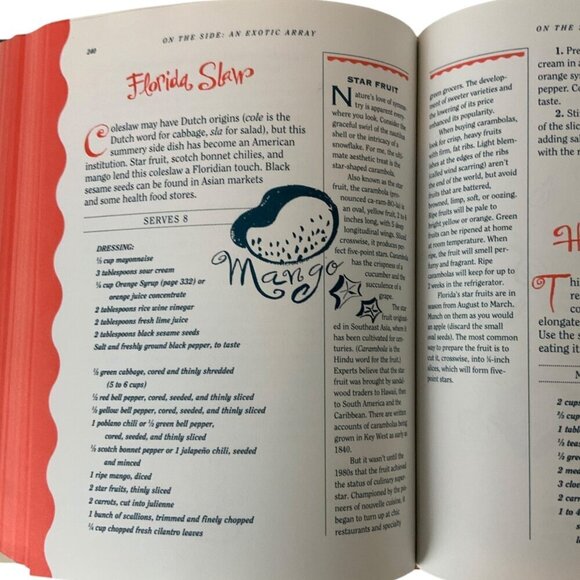 240
ON THE SIDE: AN EXOTIC ARRAY
Florida Slaw
Coleslaw may have Dutch origins (cole is the
Dutch word for cabbage, sla for salad), but this
summery side dish has become an American
institution. Star fruit, scotch bonnet chilies, and
mango lend this coleslaw a Floridian touch. Black
sesame seeds can be found in Asian markets
and some health food stores.
SERVES 8
DRESSING:
cup mayonnaise
3 tablespoons sour cream
¼ cup Orange Syrup (page 332) or
orange juice concentrate
2 tablespoons rice wine vinegar
2 tablespoons fresh lime juice
2 tablespoons black sesame seeds
Salt and freshly ground black pepper, to taste
green cabbage, cored and thinly shredded
(5 to 6 cups)
½ red bell pepper, cored, seeded, and thinly sliced
½ yellow bell pepper, cored, seeded, and thinly sliced
1 poblano chili or ½ green bell pepper,
cored, seeded, and thinly sliced
½ scotch bonnet pepper or 1 jalapeño chili, seeded
and minced
1 ripe mango, diced
2 star fruits, thinly sliced
2 carrots, cut into julienne
1 bunch of scallions, trimmed and finely chopped
¼ cup chopped fresh cilantro leaves
Mango
STAR FRUIT
Nature's love of symme-
try is apparent every-
where you look. Consider the
graceful swirl of the nautilus
shell or the intricacy of a
snowflake. For me, the ulti-
mate aesthetic treat is the
star-shaped carambola.
Also known as star
fruit, the carambola (pro-
nounced ca-ram-BO-la) is
an oval, yellow fruit, 2 to 6
inches long, with 5 deep
longitudinal wings. Sliced
crosswise, it produces per-
fect five-point stars. Carambola
has the crispness of a
cucumber and the
succulence of a
grape.
The star
fruit originated
in Southeast Asia, where it
has been cultivated for cen-
turies. (Carambola is the
Hindu word for the fruit.)
Experts believe that the star
fruit was brought by sandal-
wood traders to Hawaii, then
to South America and the
Caribbean. There are written
accounts of carambola being
grown in Key West as early as
1840.
But it wasn't until the
1980s that the fruit achieved
the status of culinary super-
star. Championed by the pio-
neers of nouvelle cuisine, it
began to turn up at chic
restaurants and specialty
green grocers. The develop-
ment of sweeter varieties and
the lowering of its price
enhanced its popularity.
When buying carambolas,
look for crisp, heavy fruits
with firm flesh. Light blem-
ishes at the edges of the ribs
(called wind scarring) aren't
the end of the world, but avoid
fruits that are battered,
browned, limp, soft, or oozing.
Ripe fruits will be pale to
bright yellow or orange. Green
fruits can be ripened at home
at room temperature. When
ripe, the fruit will smell per-
fumy and fragrant. Ripe
carambolas will keep for up to
2 weeks in the refrigerator.
Florida's star fruits are in
season from August to March.
Munch on them as you would
an apple (discard the small
oval seeds). The most common
way to prepare the fruit is to
cut it, crosswise, into ¼-inch
slices, which will form five-
point stars.
ON THE
1. Pre
cream in a
orange sy
pepper. Co
taste.
2. Sti
adding sal
H
Thi
re
co
elongate
Use the s
eating it
2 cup
2 me
3 clo
2 med